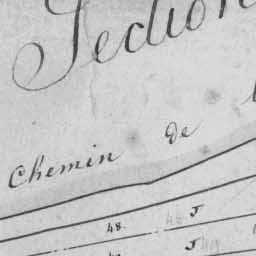 Section
Chemin de
48. J
J